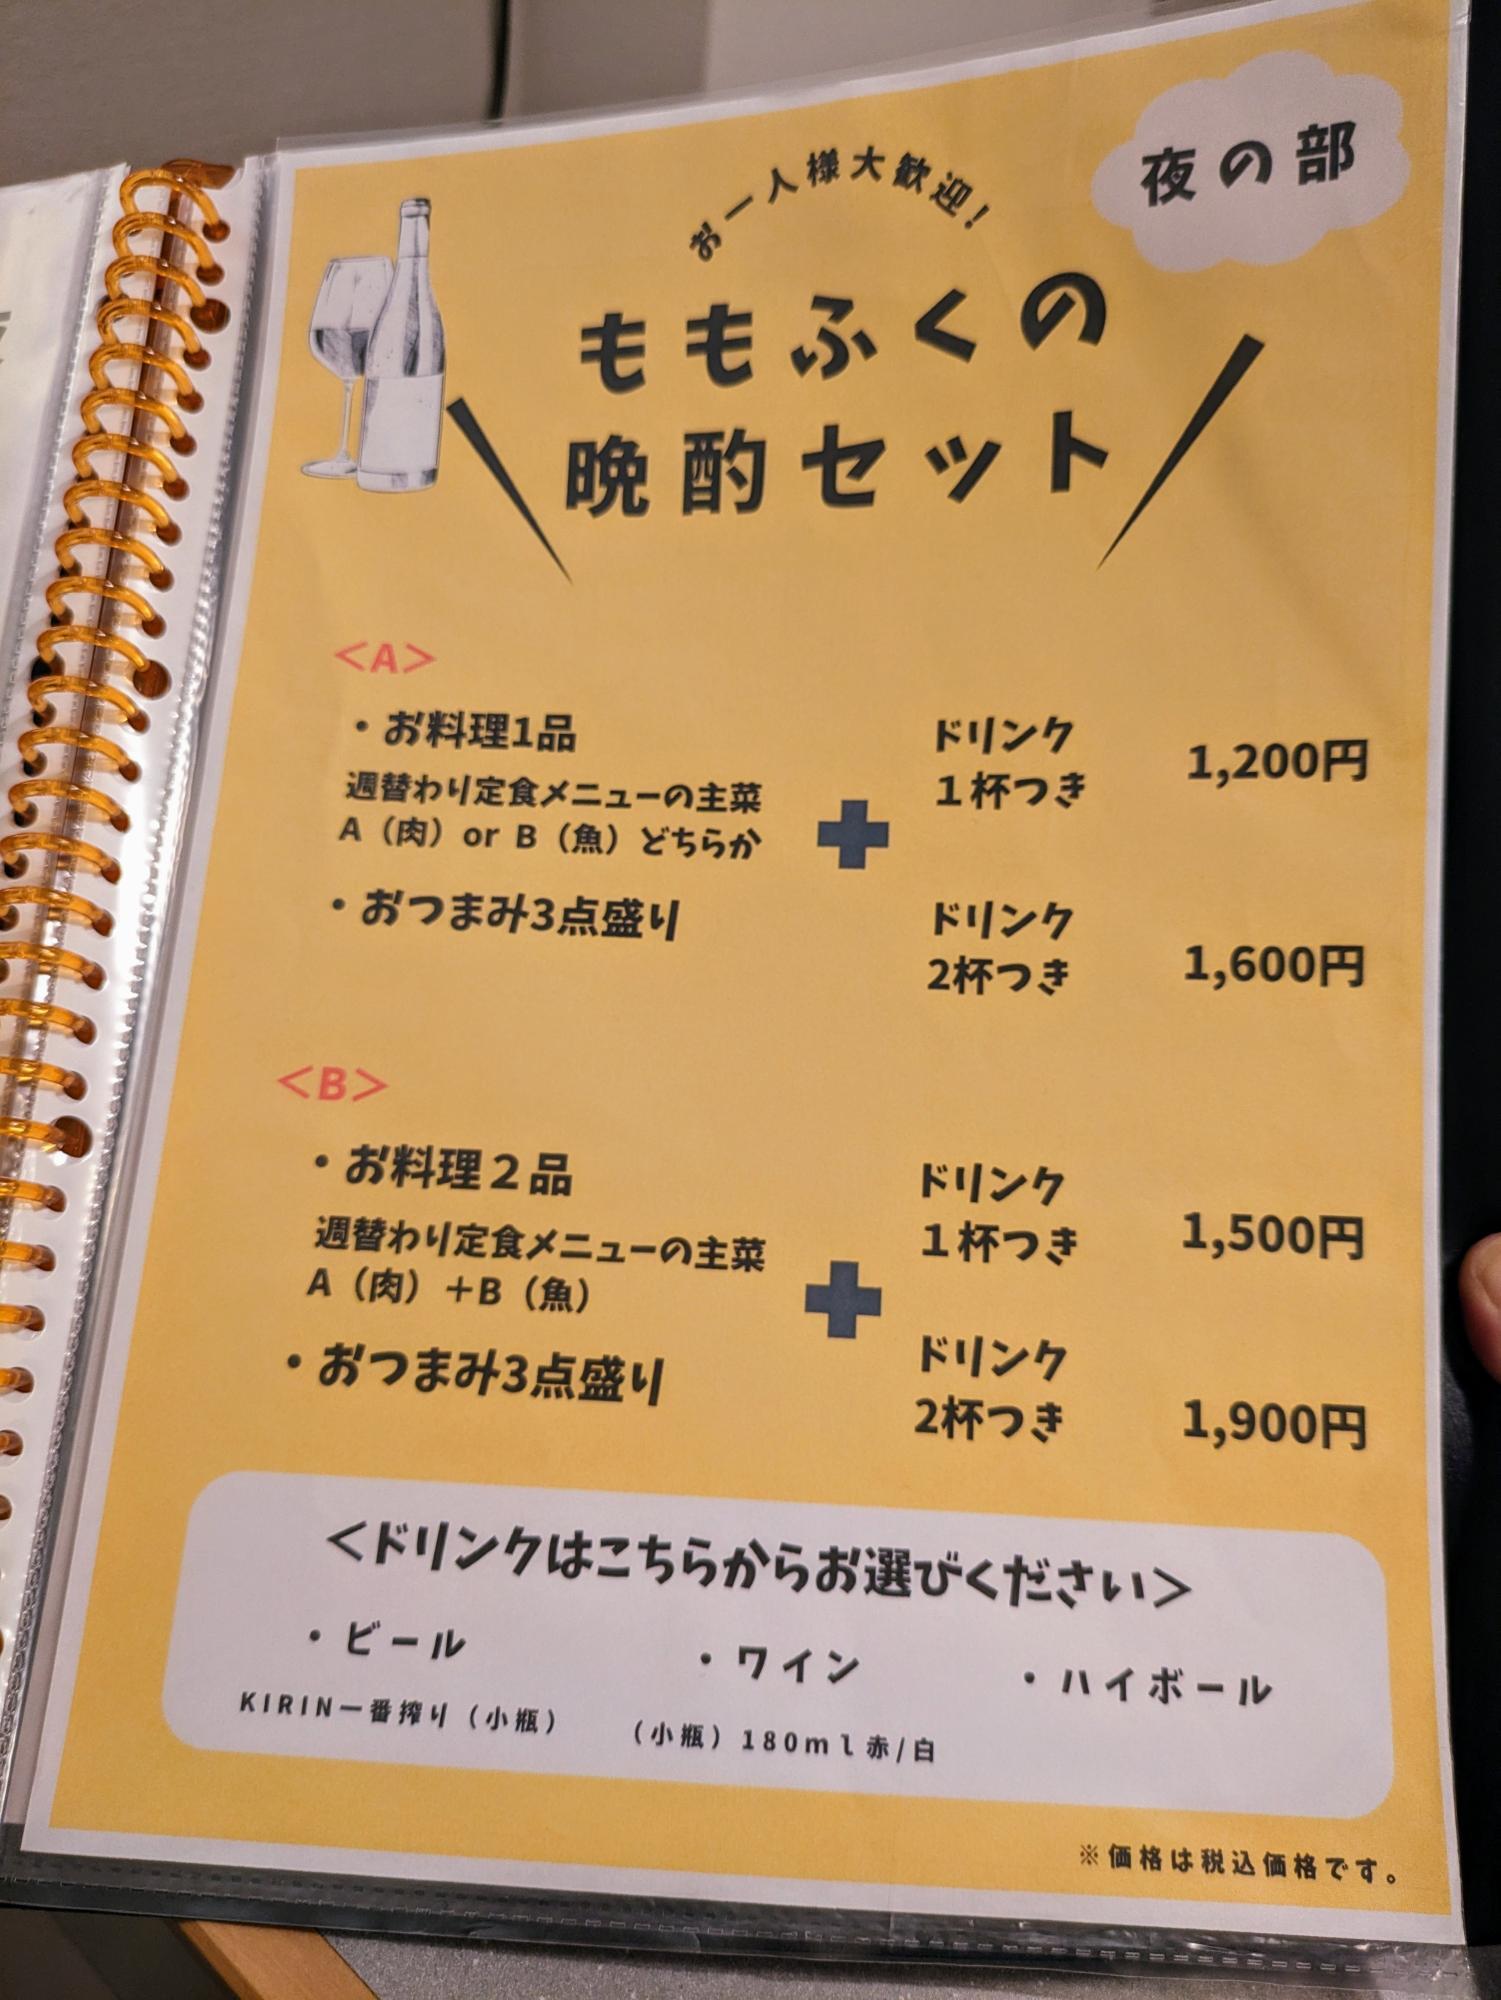 夜の部
お一人様大歓迎！
ももふくの
晩酌セット
＜A＞
・お料理1品
週替わり定食メニューの主菜
A（肉）or B（魚）どちらか
・おつまみ3点盛り
ドリンク
１杯つき
1,200円
ドリンク
2杯つき
1,600円
＜B＞
・お料理２品
週替わり定食メニューの主菜
A（肉）＋B（魚）
・おつまみ3点盛り
ドリンク
１杯つき
1,500円
ドリンク
2杯つき
1,900円
＜ドリンクはこちらからお選びください＞
・ビール
KIRIN一番搾り（小瓶）
・ワイン
（小瓶）180ml赤/白
・ハイボール
※価格は税込価格です。